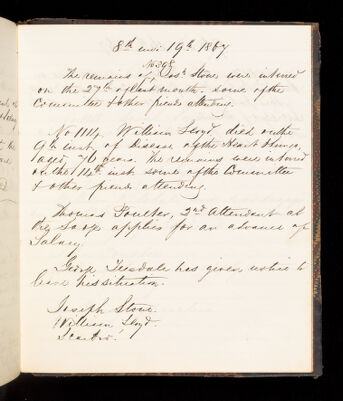 8th mo: 19th 1867
No 398
The remains of, Josh Stone were interred
on the 27th of last month. some of the
Committee & other friends attending.
No 1114. William Lloyd died on the
9th inst, of disease of the Heart & Lungs,
aged, 70 years. The remains were interred
on the 14th inst some of the Committee
& other friends attending.
Thomas Poulter, 2nd Attendant at
the Lodge applies for an advance of
Salary.
George Teesdale has given notice to
leave his situation.
Joseph Stone.
William Lloyd.